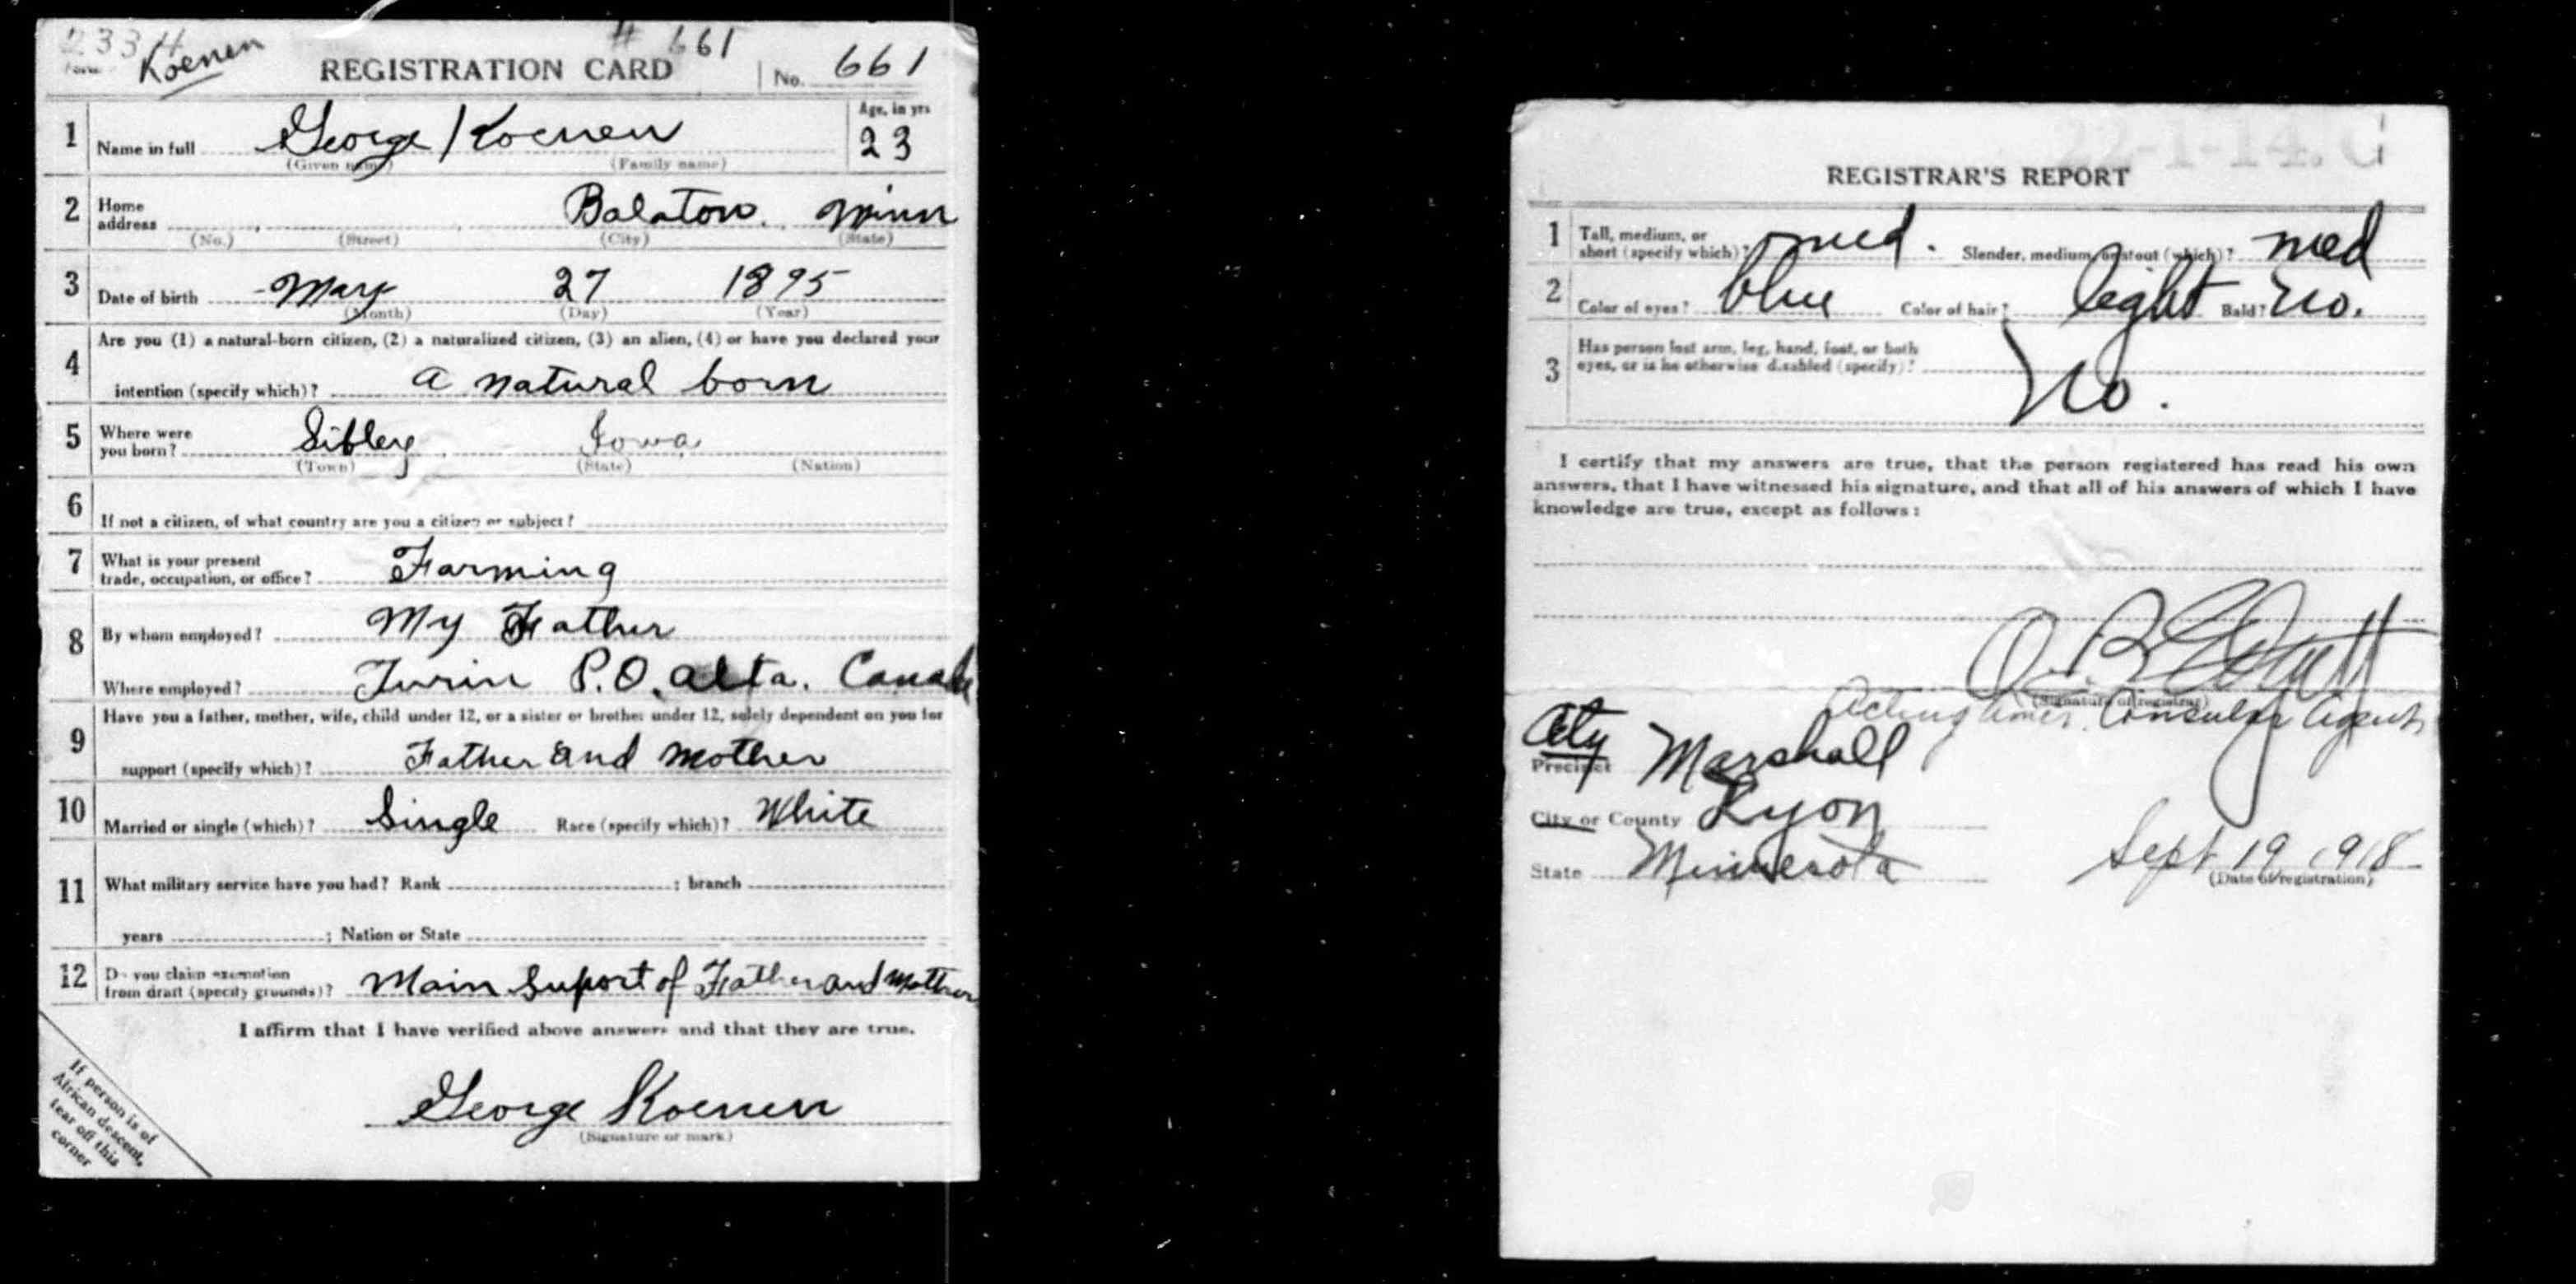 233 # 661
Form Koenen REGISTRATION CARD No. 661
1 Name in full George Koenen Age, in yrs 23
(Given name) (Family name)
2 Home address Balaton. Minn
(No.) (Street) (City) (State)
3 Date of birth May 27 1895
(Month) (Day) (Year)
4 Are you (1) a natural-born citizen, (2) a naturalized citizen, (3) an alien, (4) or have you declared your
intention (specify which)? a natural born
5 Where were you born? Sibley Iowa
(Town) (State) (Nation)
6 If not a citizen, of what country are you a citizen or subject?
7 What is your present trade, occupation, or office? Farming
8 By whom employed? My Father
Where employed? Turin P.O. alta. Canada
9 Have you a father, mother, wife, child under 12, or a sister or brother under 12, solely dependent on you for
support (specify which)? Father and Mother
10 Married or single (which)? Single Race (specify which)? White
11 What military service have you had? Rank ; branch
years ; Nation or State
12 Do you claim exemption from draft (specify grounds)? Main Suport of Father and Mother
I affirm that I have verified above answers and that they are true.
George Koenen
(Signature or mark)
If person is of
African descent,
tear off this
corner
22-1-14. C
REGISTRAR'S REPORT
1 Tall, medium, or short (specify which)? med. Slender, medium, or stout (which)? med
2 Color of eyes? blue Color of hair? light Bald? No.
3 Has person lost arm, leg, hand, foot, or both
eyes, or is he otherwise disabled (specify)? No.
I certify that my answers are true, that the person registered has read his own
answers, that I have witnessed his signature, and that all of his answers of which I have
knowledge are true, except as follows:
(Signature of registrar)
Acting Amer. Consular Agent
City
Precinct Marshall
City or County Lyon
State Minnesota Sept 19 1918
(Date of registration)